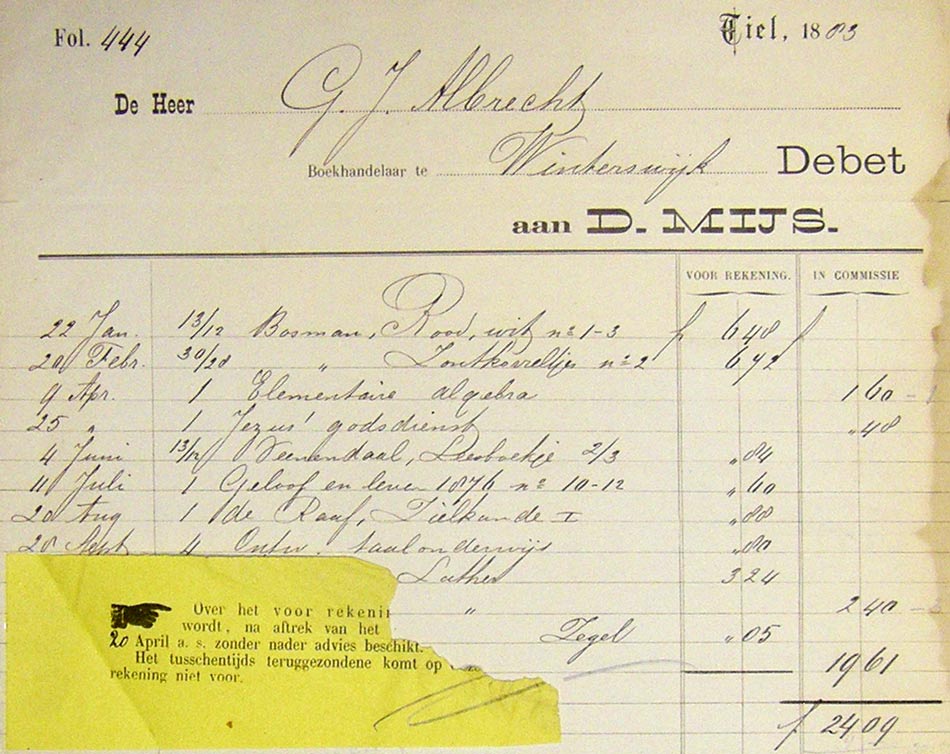 Fol. 444
Tiel, 1883
De Heer G. J. Albrecht
Boekhandelaar te Winterswijk Debet
aan D. MIJS.
VOOR REKENING. IN COMMISSIE
22 Jan. 13/12 Bosman, Rood, wit nº 1-3 f 6 48 f
20 Febr. 30/28 " Zoutkorreltjes nº 2 6 72
9 Apr. 1 Elementaire algebra 1 60
25 " 1 Jezus' godsdienst " 48
4 Juni 13/12 Veenendaal, Leesboekje 2/3 " 84
11 Juli 1 Geloof en leven 1876 nº 10-12 " 60
20 Aug 1 de Raaf, Zielkunde I " 88
28 Sept 4 Ontw. taalonderwijs " 80
Luther 3 24
" 2 40
Over het voor rekenin
wordt, na aftrek van het
20 April a. s. zonder nader advies beschikt.
Het tusschentijds teruggezondene komt op
rekening niet voor.
Zegel " 05
19 61
f 24 09